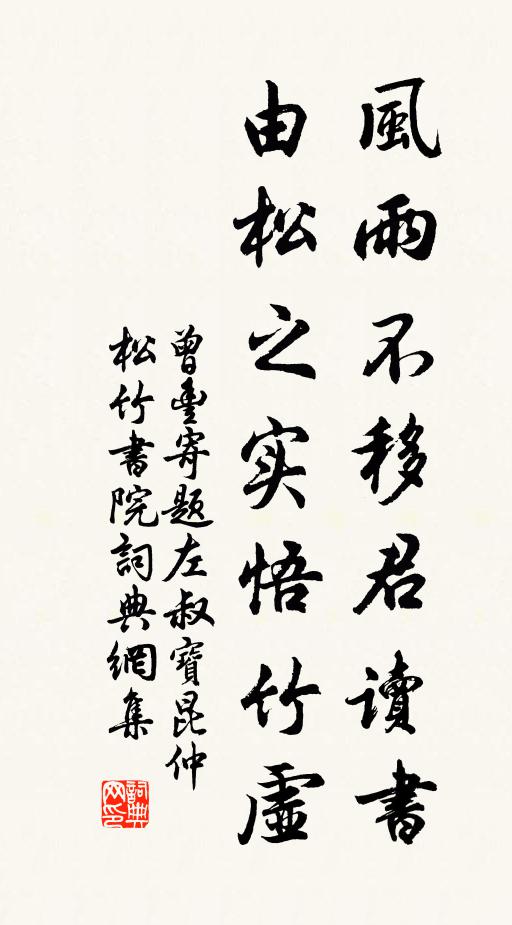 風雨不移君讀書
由松之实悟竹虛
曾豐寄題左叔寶昆仲
松竹書院詞典網集
詞典网印